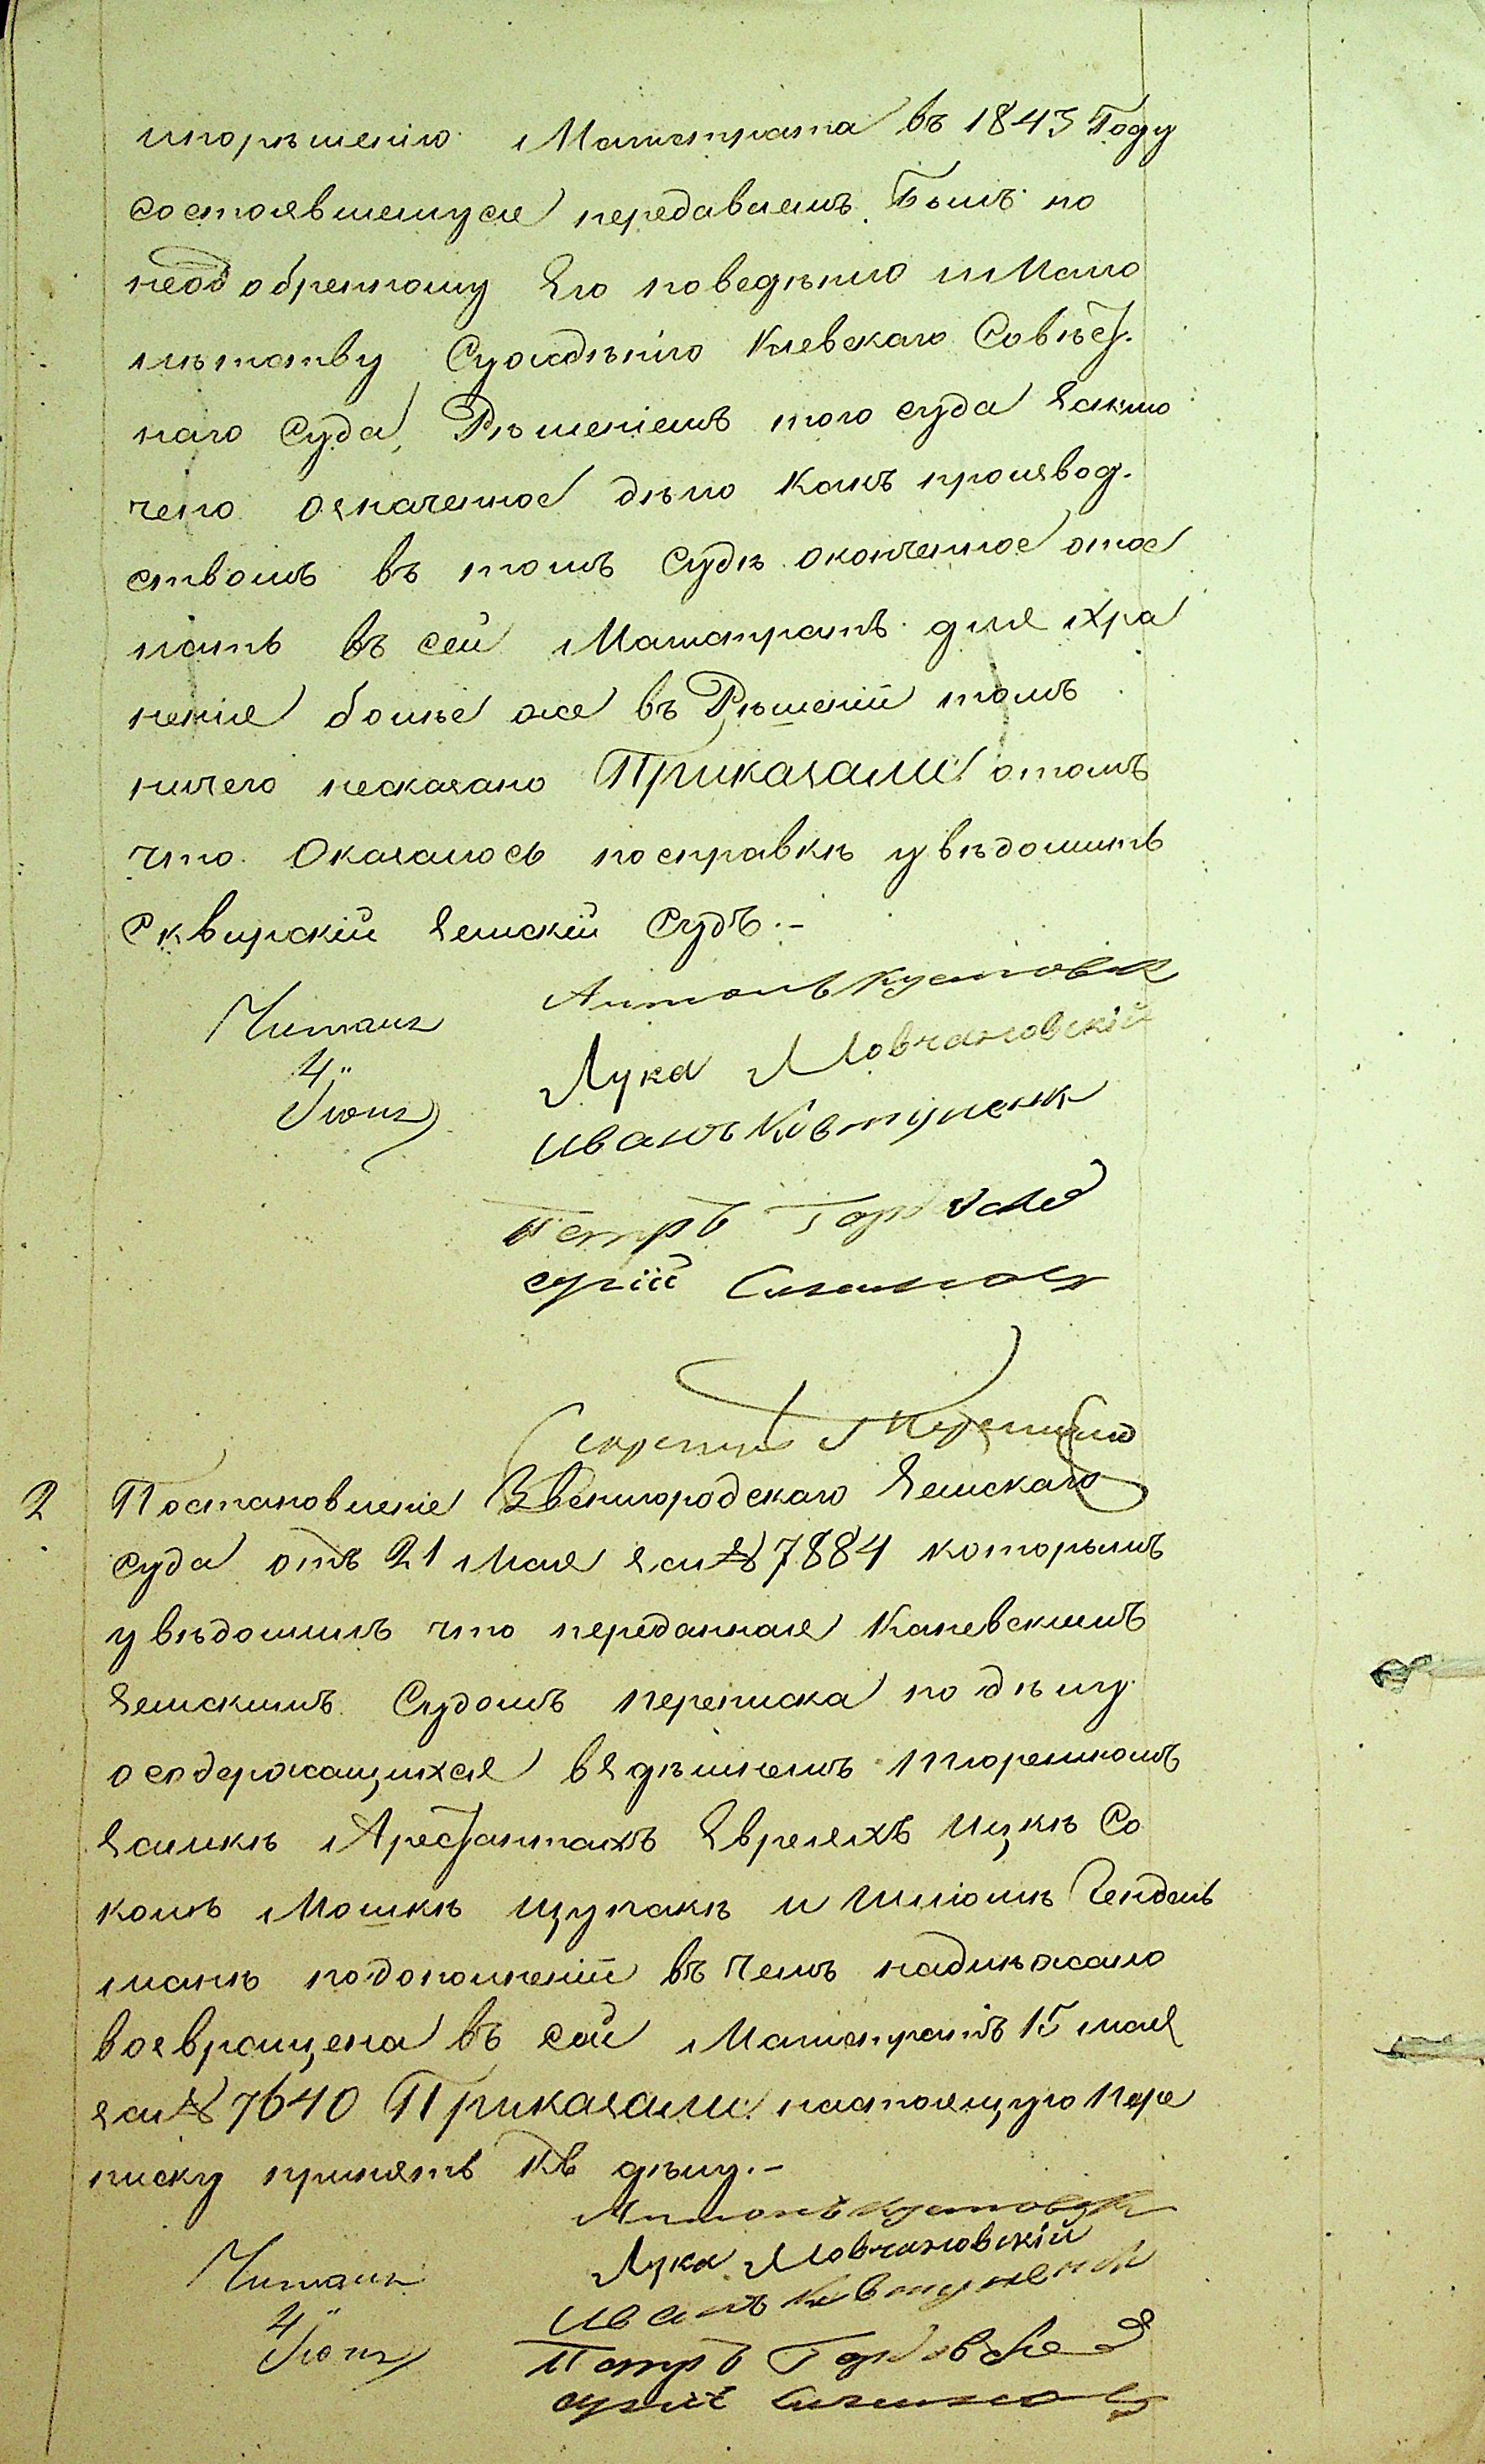 ипорѣшенію Магистрата въ 1843 Году
состоявшемуся передаваемъ Былъ по
неодобренному Его поведѣнію и Мало
лѣтству Сужденію Кіевскаго Совѣст.
наго Суда, Рѣшеніемъ того суда Заклю
чено означенное дѣло какъ производ.
ствомъ въ томъ Судѣ оконченное отос
лать въ сей Магистратъ для хра
ненія болѣе же въ Рѣшеніи томъ
ничего несказано Приказали отомъ
что Оказалось посправкѣ увѣдомить
Сквирскій Земскій Судъ.–
Читалъ
4"
Іюня
Антонъ Кустовск
Лука Мовчановскій
Иванъ Ковтуненк
Петръ
Секретарь
2 Постановленіе Звенигородскаго Земскаго
суда отъ 21 Мая за № 7884 которымъ
увѣдомилъ что переданная Каневскимъ
Земскимъ Судомъ переписка по дѣлу
осодержащихся вздѣшнемъ Тюремномъ
Замкѣ Арестантахъ Евреяхъ Ицкѣ Со
колѣ Мошкѣ Щупакѣ и Шліомѣ Гендель
манѣ подополненіи въ Чемъ надлѣжало
возвращена въ сей Магистратъ 15 мая
за № 7640 Приказали настоящую Пере
писку принять Къ дѣлу.–
Читалъ
4"
Іюня
Антонъ Кустовск
Лука Мовчановскій
Иванъ Ковтуненк
Петръ